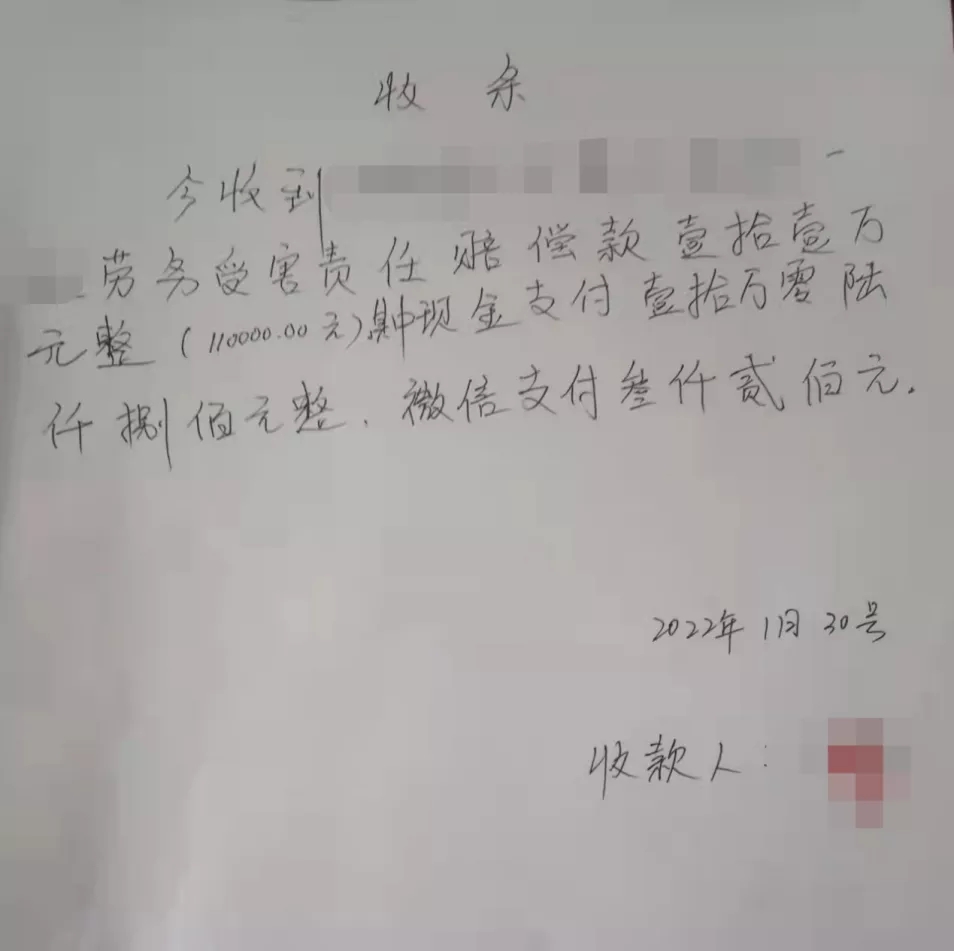 收 条
今收到
劳务受害责任赔偿款壹拾壹万
元整(110000.00元)其中现金支付壹拾万零陆
仟捌佰元整、微信支付叁仟贰佰元.
2022年1月30号
收款人: